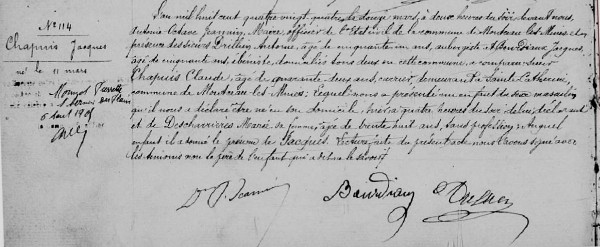 No 114
Chapuis Jacques
né le 11 mars
6 aout 1905
L'an mil huit cent quatre vingt quatre, le douze mars, à deux heures du soir devant nous,
Antoine Octave Jeannin, Maire, officier de l'état civil de la commune de Montceau-les-Mines, en
présence des sieurs Antoine, âgé de cinquante un ans, aubergiste, et Jacques,
âgé de cinquante ans, ébéniste, domiciliés tous deux en cette commune, a comparu sieur
Chapuis Claude, âgé de quarante deux ans, ouvrier, demeurant à Sainte Catherine,
commune de Montceau-les-Mines. Lequel nous a présenté un enfant du sexe masculin
qu'il nous a déclaré être né en son domicile, hier à quatre heures du soir de lui déclarant
et de Marie sa femme, âgée de trente huit ans, sans profession; auquel
enfant il a donné le prénom de Jacques. Lecture faite du présent acte nous l'avons signé avec
les témoins non le père de l'enfant qui a déclaré ne le savoir